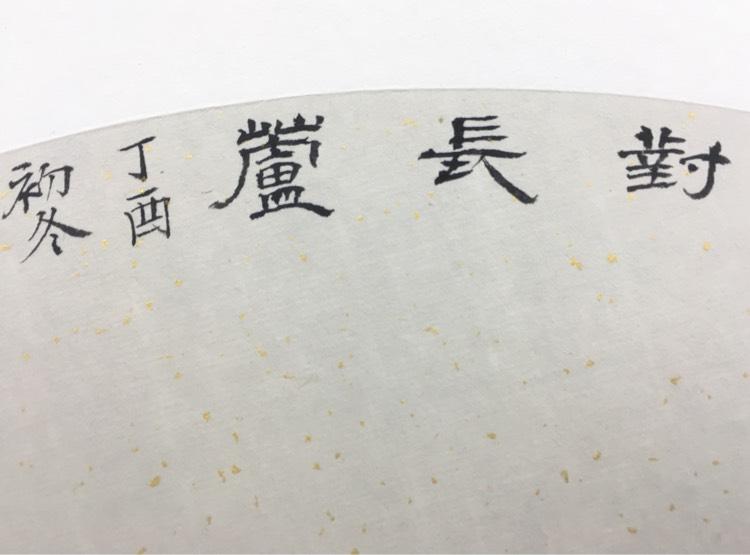 對
長
蘆
丁酉
初冬